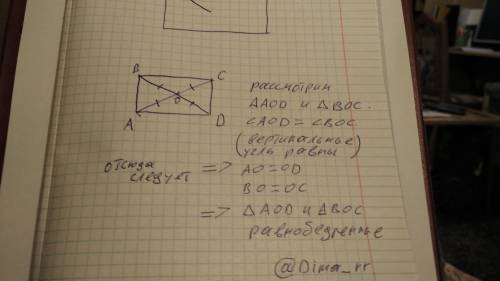 B
C
O
A
D
рассмотрим
ΔAOD и ΔBOC.
∠AOD = ∠BOC
(вертикальные
углы равны)
отсюда
следует => AO=OD
BO=OC
=> ΔAOD и ΔBOC
равнобедренные
@Dima_rr